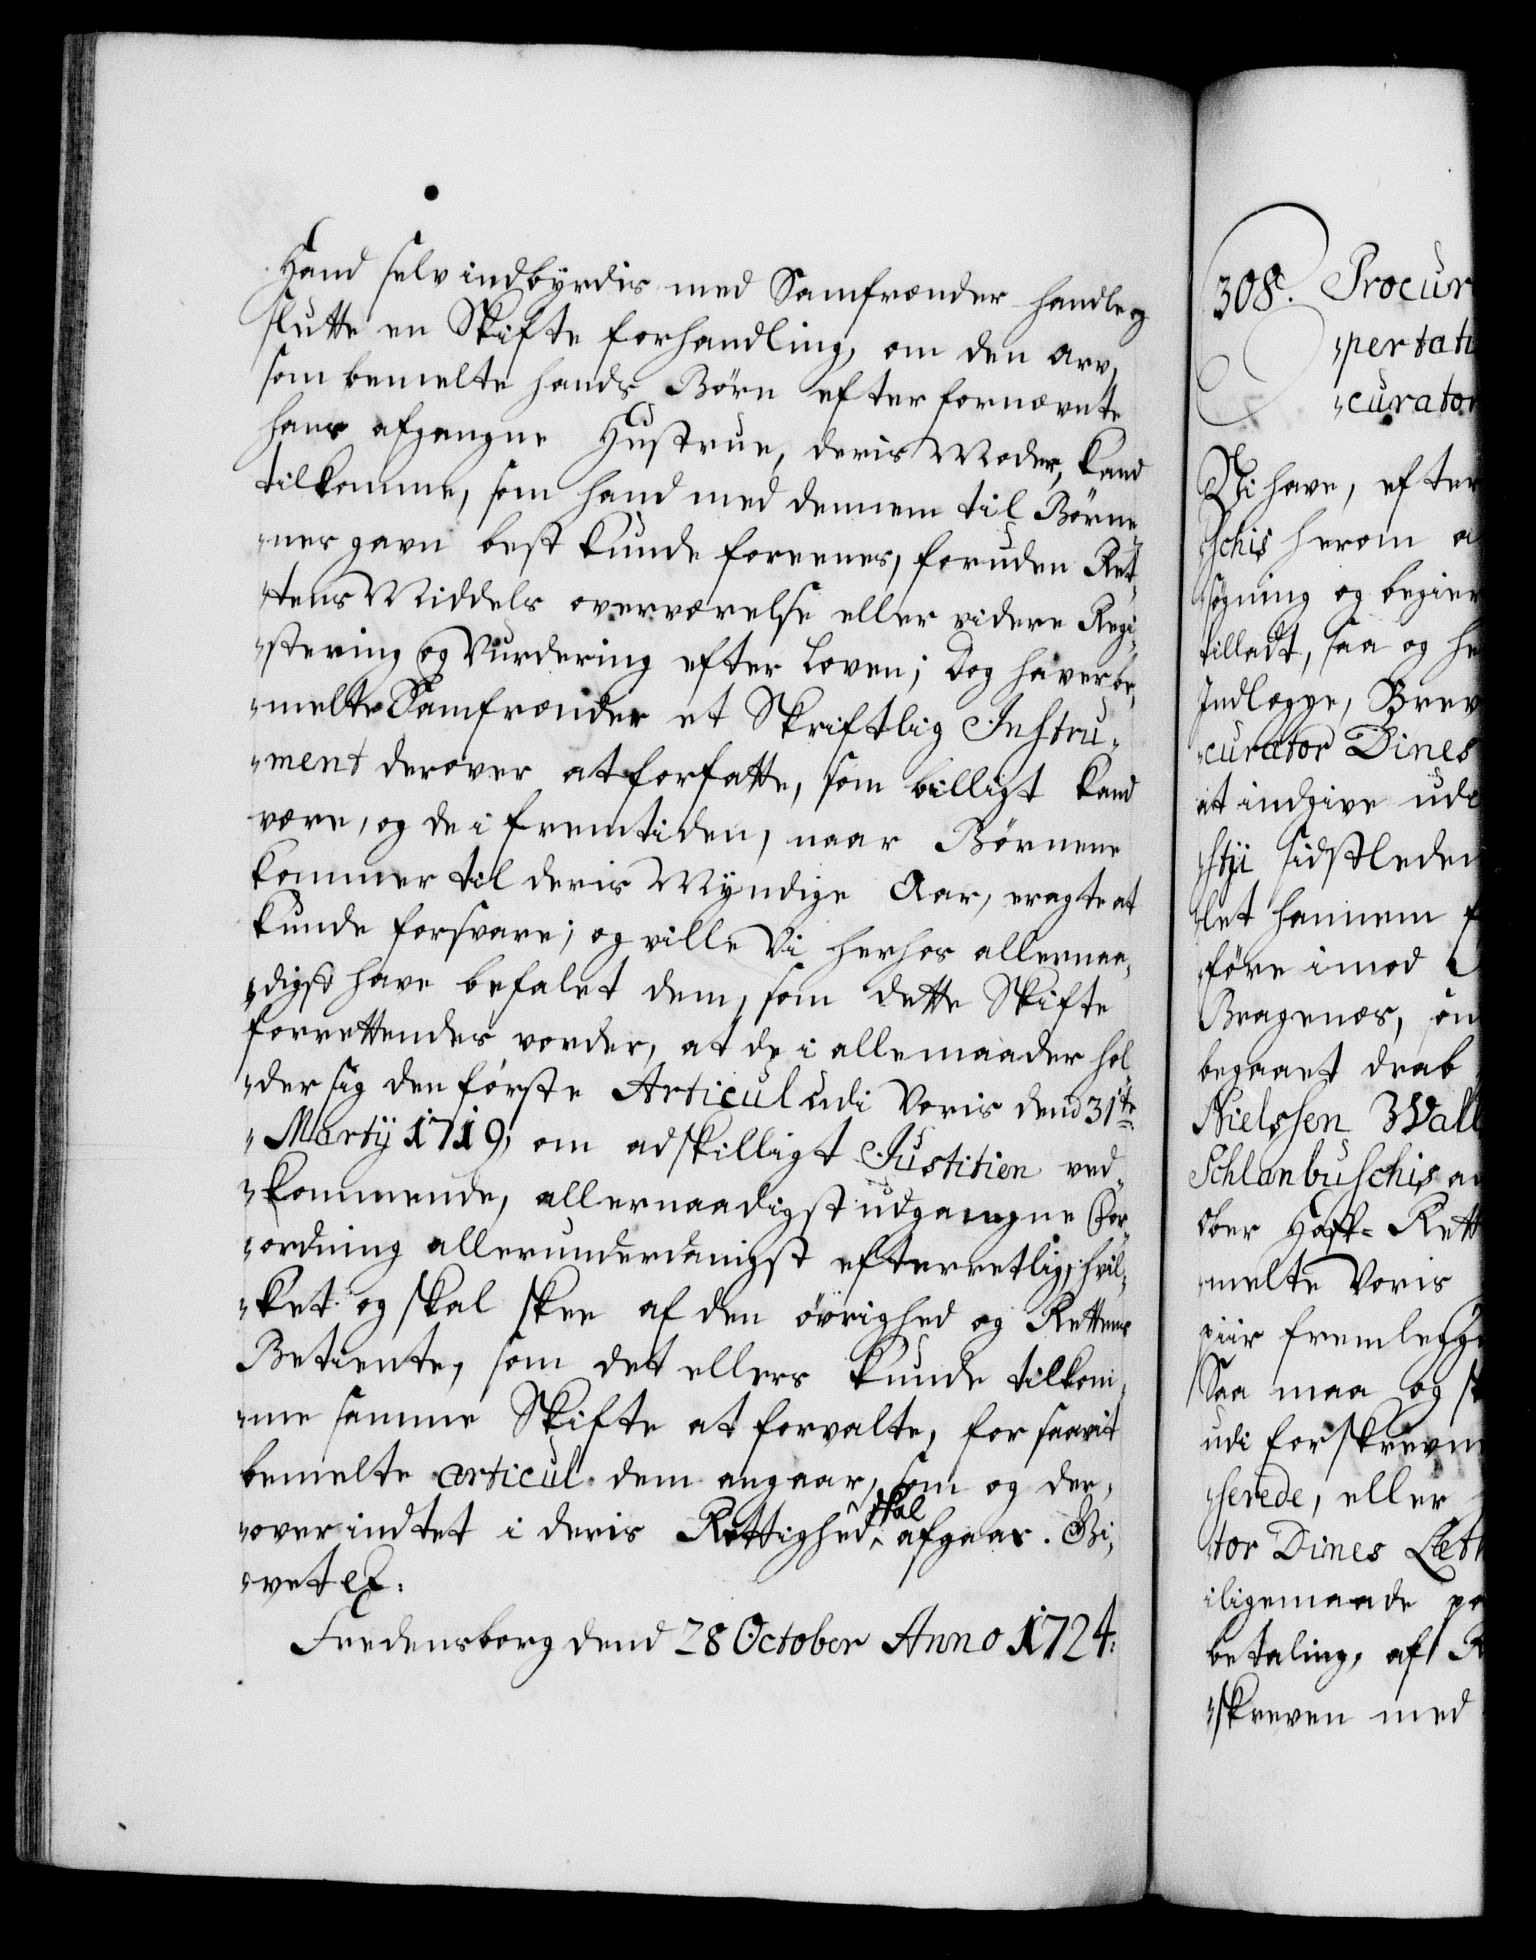 Hand selv indbyrdis med Samfrænder handle og
slutte en Skifte forhandling, om den arv,
som bemelte hands Børn efter fornævnte
hans afgangne Hustrue, deris Moder, kand
tilkomme, som hand med dennem til Børne-
"nes gavn best kunde foreenes, foruden Ret-
"tens Middels overværelse eller videre Regi-
"stering og Vurdering efter Loven; Dog haver be-
"melte Samfrænder et Skriftlig Instru-
"ment derover at forfatte, som billigt kand
være, og de i fremtiden, naar Børnene
kommer til deris Myndige Aar, eragte at
kunde forsvare; og ville Vi herhos allernaa-
"digst have befalet dem, som dette Skifte
forrettendes vorder, at de i allemaader hol-
"der sig den første Articul udi Voris dend 31te
"Martij 1719, om adskilligt Justitien ved-
"kommende, allernaadigst udgangne For-
"ordning allerunderdanigst efterretlig, hvil-
"ket og skal skee af den øvrighed og Rettens
Betiente, som det ellers kunde tilkom-
"me samme Skifte at forvalte, for saavit
bemelte articul dem angaar, som og der-
"over indtet i deris Rettighed skal afgaae. Gi-
"vet etc.
Fredensborg dend 28 October Anno 1724.
308. Procur
"pertati
"curator
Vi have, efter
"schis herom a
"søgning og begier
tilladt, saa og he
Indlægge, Brev
"curator Dines
at indgive udi
"stji sidstleden
let hannem f
"føre imod
Bragenæs, om
begaaet drab
Nielssen Wall
Schlanbuschis an
Ober Hoff-Rett
"melte Voris
piir fremlegge
Saa maa og sk
udi forskrevne
"serede, eller
"tor Dines Læt
iligemaade pa
betaling, af R
"skreven med